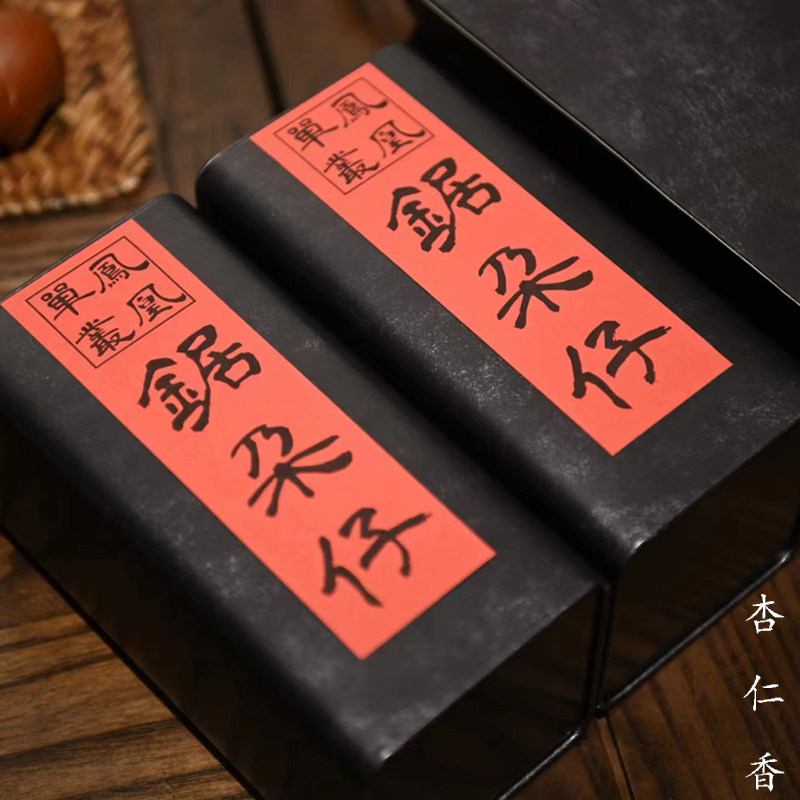 鳳凰
單叢
鋸朶仔
鳳凰
單叢
鋸朶仔
杏仁香